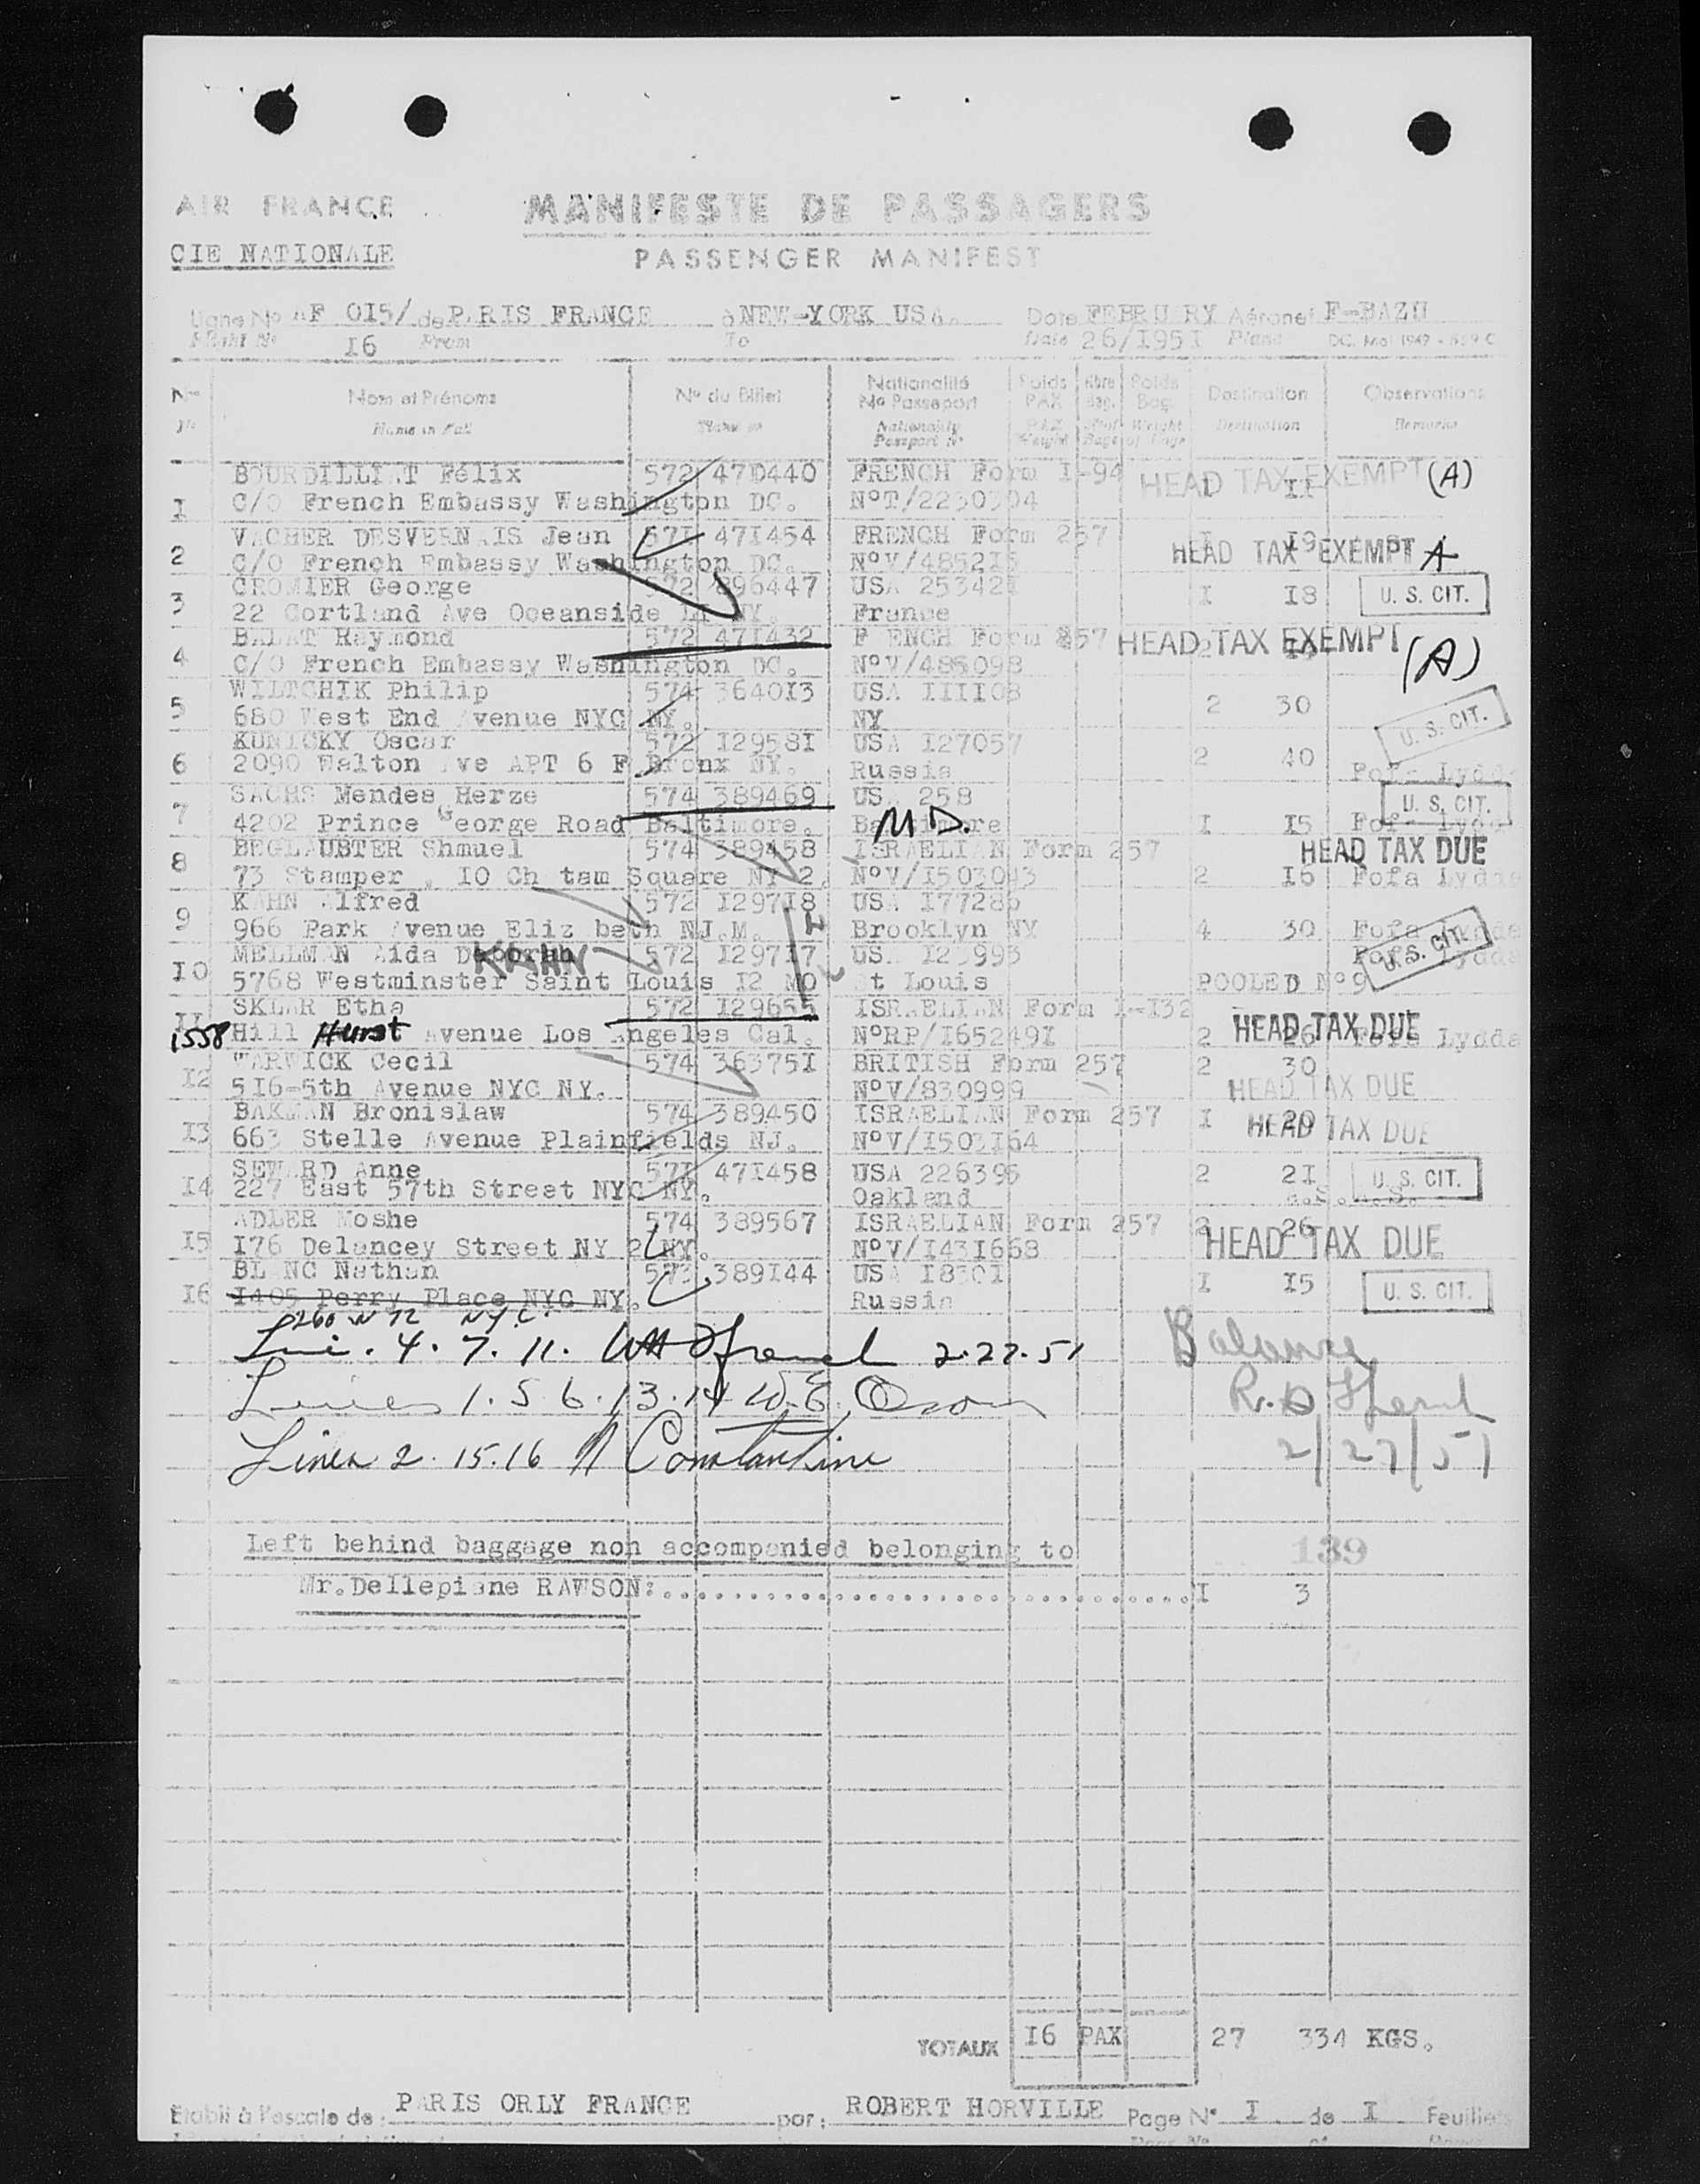 AIR FRANCE
MANIFESTE DE PASSAGERS
CIE NATIONALE
PASSENGER MANIFEST
Ligne No AF 0I5/ de P RIS FRANCE à NEW-YORK USA. Date FEBRU RY Aéronef F-BAZU
I6 From To Date 26/I95I Plane
No Nom et Prénoms No du Billet Nationalité No Passeport Poids PAX Nbre Bag. Poids Bag. Destination Observations
Name in Full Nationality Passport No PAX Weight Weight of Bags Destination Remarks
BOURDILLI T Félix 572 47D440 FRENCH Form I-94 HEAD TAX EXEMPT (A)
I C/O French Embassy Washington DC. NoT/2230394
VACHER DESVERN IS Jean 57I 47I454 FRENCH Form 257 I I9
2 C/O French Embassy Washington DC. NoV/485215 HEAD TAX EXEMPT A
CROMIER George 572 896447 USA 25342I
3 22 Cortland Ave Oceanside LI NY. France I I8 U. S. CIT.
BALAT Raymond 572 47I432 F ENCH Form 257 HEAD TAX EXEMPT
4 C/O French Embassy Washington DC. NoV/485098 2 (A)
WILTCHIK Philip 574 3640I3 USA IIII08
5 680 West End venue NYC NY. NY 2 30 U. S. CIT.
KUNICKY Oscar 572 I2958I USA I27057
6 2090 Walton ve APT 6 F Bronx NY. Russia 2 40 Lydda
SACHS Mendes Herze 574 389469 US 258 U. S. CIT.
7 4202 Prince George Road Baltimore. Baltimore MD. I I5
BEGLAUBTER Shmuel 574 389458 ISRAELIAN Form 257 HEAD TAX DUE
8 73 Stamper . IO Ch tam Square NY 2. NoV/I503043 2 I6 Fofa Lydda
K HN lfred 572 I297I8 USA I77286
9 966 Park venue Eliz beth NJ.M. Brooklyn NY 4 30 Fofa Lydda
MELLM N Aida Deborah KAHN 572 I297I7 US I2 993 U. S. CIT. Fofa Lydda
IO 5768 Westminster Saint Louis I2 MO St Louis POOLED No9
SKLAR Etha 572 I29655 ISRAELIAN Form I-I32
II 1558 Hill Hurst Avenue Los Angeles Cal. NoRP/I65249I 2 26 HEAD TAX DUE Fofa Lydda
WARWICK Cecil 574 36375I BRITISH Form 257 2 30
I2 5I6-5th Avenue NYC NY. NoV/830999 HEAD TAX DUE
BAKMAN Bronislaw 574 389450 ISRAELIAN Form 257 I 20
I3 663 Stelle Avenue Plainfields NJ. NoV/I503I64 HEAD TAX DUE
SEWARD Anne 57I 47I458 USA 226396 2 2I U. S. CIT.
I4 227 East 57th Street NYC NY. Oakland
ADLER Moshe 574 389567 ISRAELIAN Form 257 2 26
I5 I76 Delancey Street NY 2 NY. NoV/I43I668 HEAD TAX DUE
BL NC Nathan 573 389I44 USA I830I I I5 U. S. CIT.
I6 I405 Perry Place NYC NY. Russia
260 W 72 NYC.
4. 7. 11. 2.27.51 Balance
Lines 1. 5 6. 13. 14 W.E.
Lines 2. 15. 16 Constantine 2/27/51
Left behind baggage non accompanied belonging to 139
Mr.Dellepiane RAWSON:.................................I 3
TOTAUX I6 PAX 27 334 KGS.
Etabli à l'escale de : PARIS ORLY FRANCE par : ROBERT HORVILLE Page No I de I Feuillets